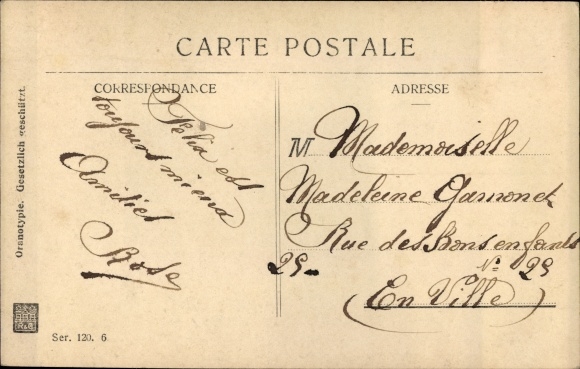 CARTE POSTALE
CORRESPONDANCE
Félia est
toujours mieux
Amitiés
Rose
ADRESSE
M Mademoiselle
Madeleine Gamonet
Rue des Bons enfants
25 N° 25
(En Ville)
Oranotypie. Gesetzlich geschützt.
Ser. 120. 6